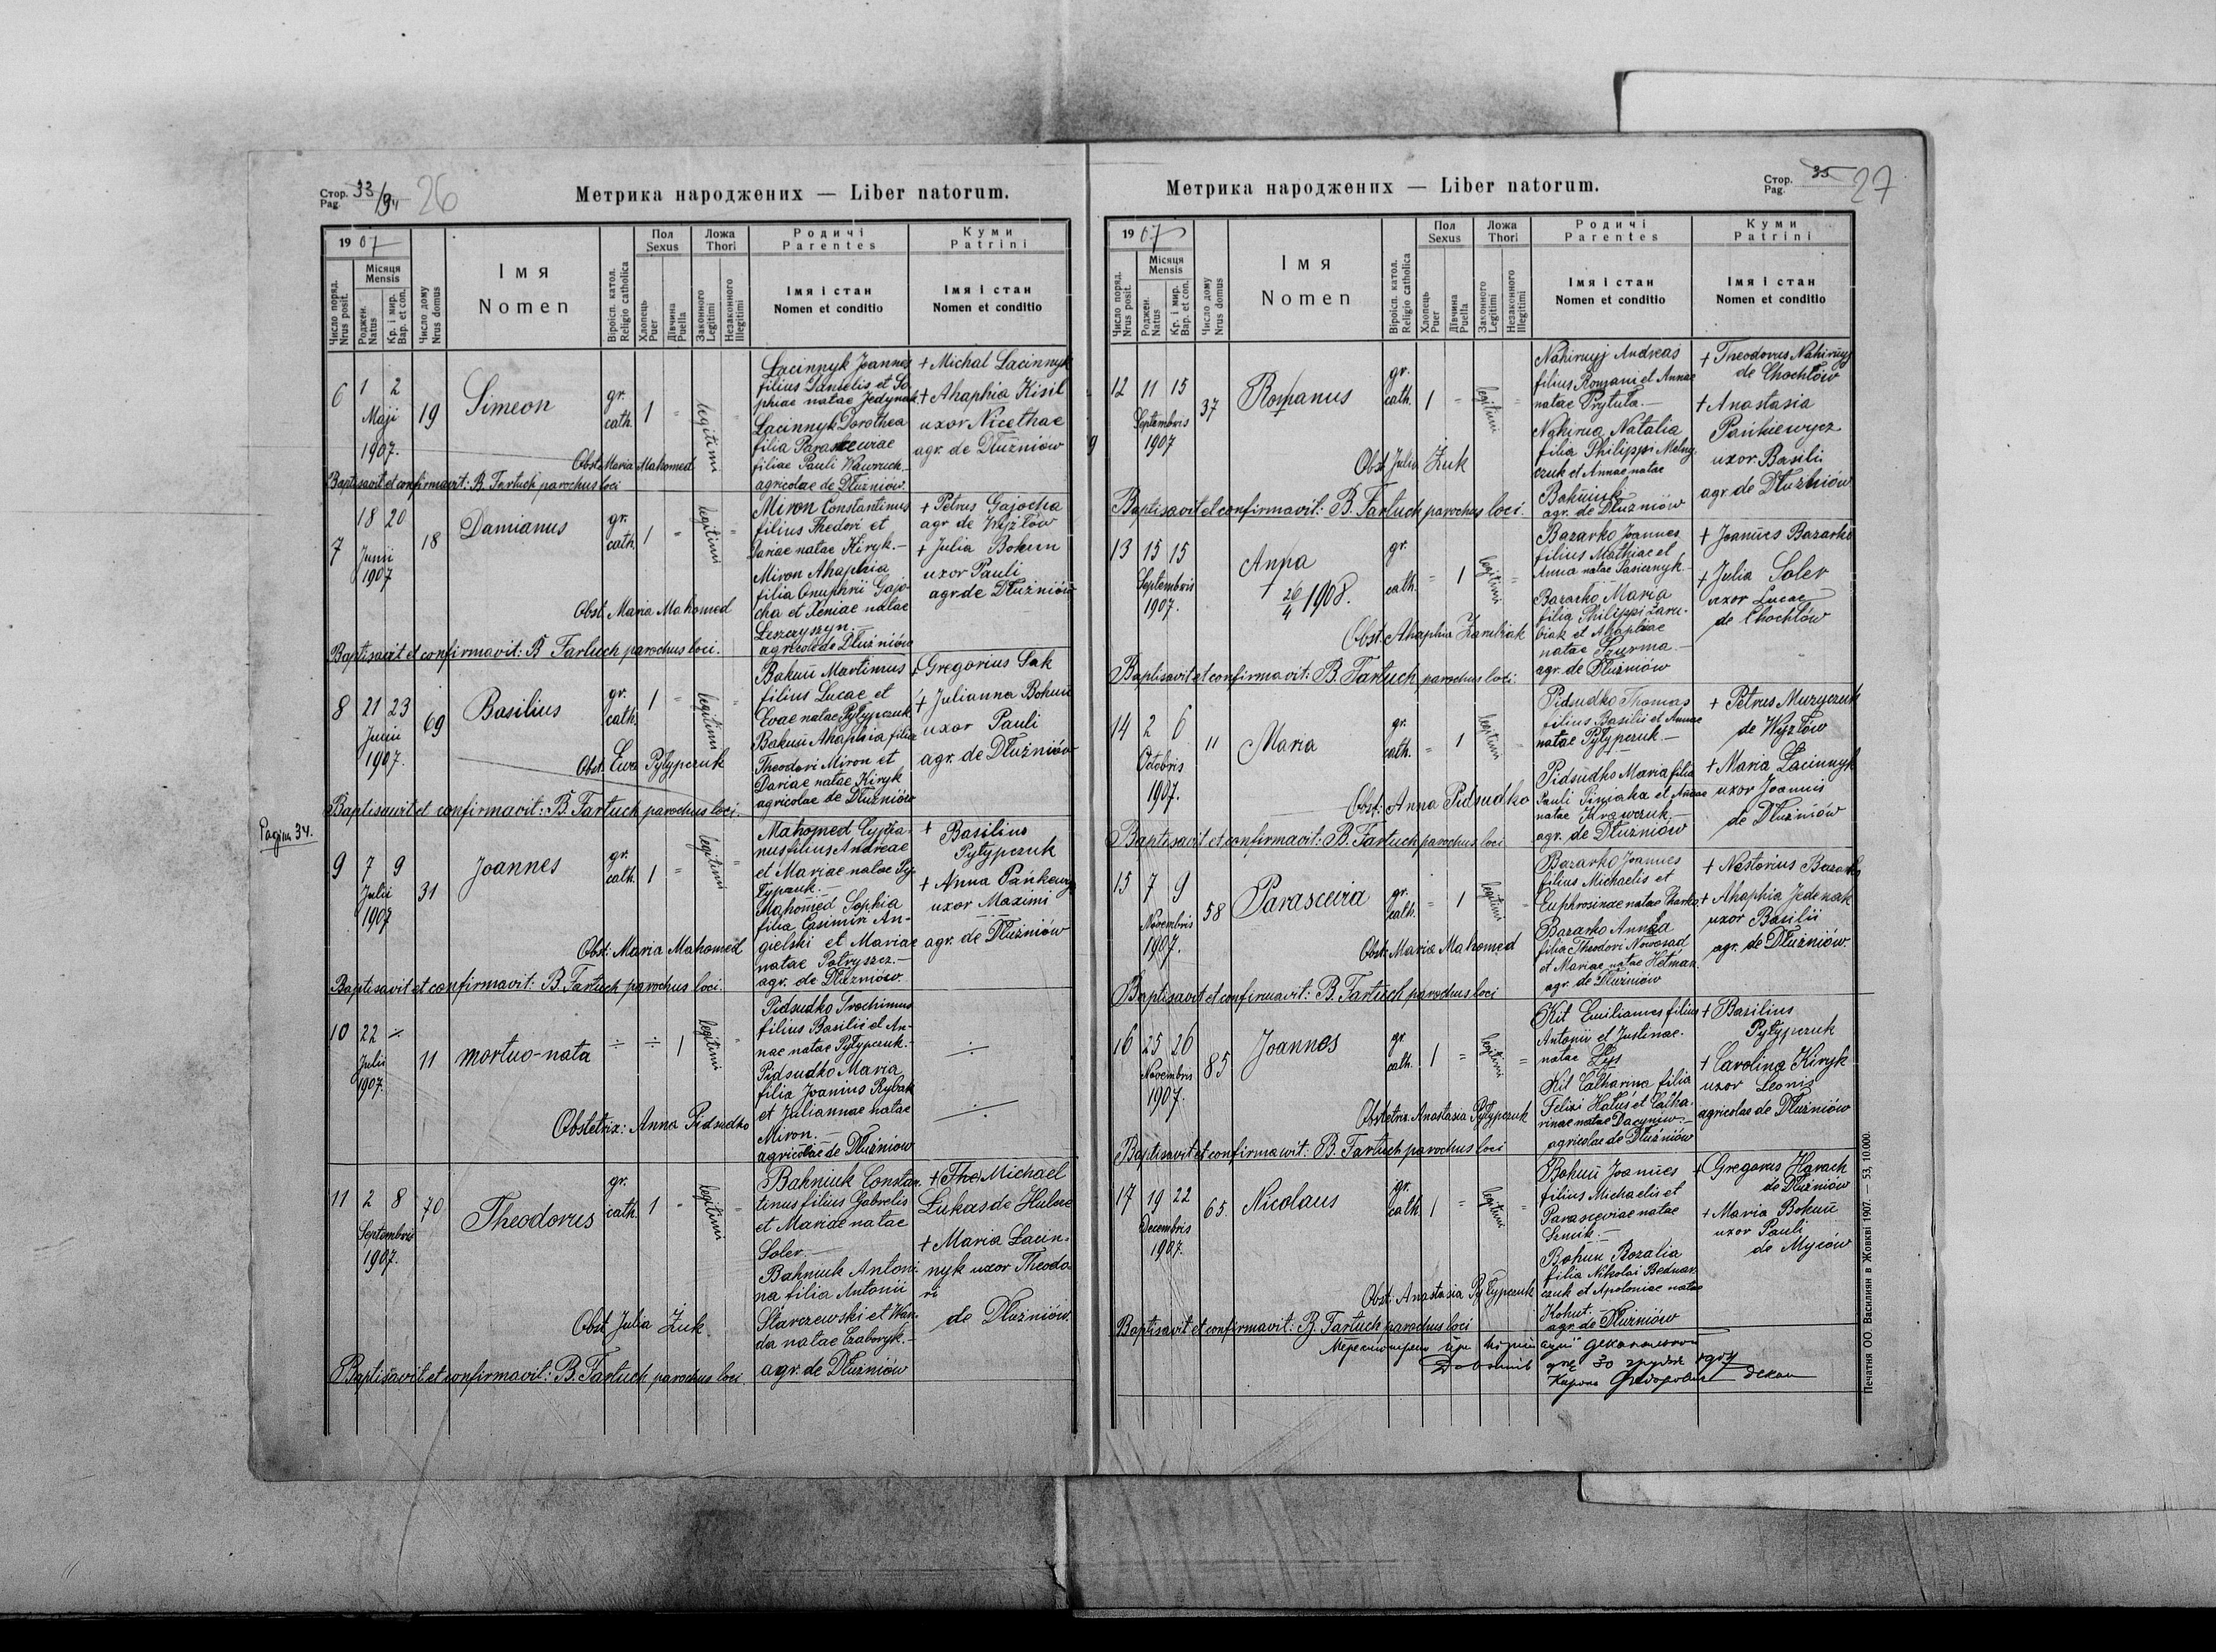 Стор. Pag. 33/34 26
Метрика народжених — Liber natorum.
1907
Число поряд. Nrus posit.
Місяця Mensis
Роджен. Natus
Кр. і мир. Bap. et con.
Число дому Nrus domus
Імя
Nomen
Віроісп. катол. Religio catholica
Пол Sexus
Хлопець Puer
Дівчина Puella
Ложа Thori
Законного Legitimi
Незаконного Illegitimi
Родичі
Parentes
Імя і стан
Nomen et conditio
Куми
Patrini
Імя і стан
Nomen et conditio
6 1 2 Maji 1907. 19 Simeon gr. cath. 1 " legitimi "
Lacinnyk Joannes
filius Danielis et So
phiae natae Jedynak
Lacinnyk Dorothea
filia Parascewiae
filiae Pauli Wawruch.
agricolae de Dłużniów.
+ Michal Lacinnyk
+ Ahaphia Kisil
uxor Nicethae
agr. de Dłużniów
Obst. Maria Mahomed
Baptisavit et confirmavit: B. Tartuch parochus loci
7 18 20 Junii 1907 18 Damianus gr. cath. 1 " legitimi "
Miron Constantinus
filius Thedori et
Dariae natae Kiryk.—
Miron Ahaphia
filia Onuphrii Gajo-
cha et Xeniae natae
Leszczyszyn.—
agricolae de Dłużniów
+ Petrus Gajocha
agr. de Wyżłów
+ Julia Bohun
uxor Pauli
agr de Dłużniów
Obst. Maria Mahomed
Baptisavit et confirmavit: B Tartuch parochus loci.
8 21 23 Junii 1907. 69 Basilius gr. cath. 1 " legitimi "
Bakun Martinus
filius Lucae et
Evae natae Pyłypczuk
Bakun Ahaphia filia
Theodori Miron et
Dariae natae Kiryk
agricolae de Dłużniów
+ Gregorius Sak
+ Julianna Bohun
uxor Pauli
agr. de Dłużniów
Obst. Ewa Pyłypczuk
Baptisavit et confirmavit: B. Tartuch parochus loci.
Pagina 34.
9 7 9 Julii 1907 31 Joannes gr. cath. 1 " legitimi "
Mahomed Cypria
nus filius Andreae
et Mariae natae Py
łypczuk.—
Mahomed Sophia
filia Casimiri An-
gielski et Mariae
natae Patryszcz.—
agr. de Dłużniów.
+ Basilius
Pyłypczuk
+ Anna Pańkewycz
uxor Maximi
agr. de Dłużniów
Obst: Maria Mahomed
Baptisavit et confirmavit: B. Tartuch parochus loci.
10 22 ÷ Julii 1907. 11 mortuo-nata ÷ ÷ 1 legitimi "
Pidsudko Trochimus
filius Basilii et An-
nae natae Pyłypczuk.—
Pidsudko Maria
filia Joannis Rybak
et Juliannae natae
Miron.—
agricolae de Dłużniow
÷
÷
Obstetrix: Anna Pidsudko
11 2 8 Septembris 1907. 70 Theodorus gr. cath. 1 " legitimi "
Bahniuk Constan-
tinus filius Gabrielis
et Mariae natae
Soler.—
Bahniuk Antoni-
na filia Antonii
Starczewski et Wan-
da natae Czaboryk.—
agr. de Dłużniów
+ The Michael
Lukas de Hulcze
+ Maria Lacin-
nyk uxor Theodo-
ri
de Dłużniów.
Obst Julia Żuk.
Baptisavit et confirmavit: B. Tartuch parochus loci.
Стор. Pag. 35 27
Метрика народжених — Liber natorum.
1907
Число поряд. Nrus posit.
Місяця Mensis
Роджен. Natus
Кр. і мир. Bap. et con.
Число дому Nrus domus
Імя
Nomen
Віроісп. катол. Religio catholica
Пол Sexus
Хлопець Puer
Дівчина Puella
Ложа Thori
Законного Legitimi
Незаконного Illegitimi
Родичі
Parentes
Імя і стан
Nomen et conditio
Куми
Patrini
Імя і стан
Nomen et conditio
12 11 15 Septembris 1907 37 Romanus gr. cath. 1 " legitimi "
Nahirnyj Andreas
filius Romani et Annae
natae Prytuła.—
Nahirna Natalia
filia Philippi Melny-
czuk et Annae natae
Bahniuk
agr. de Dłużniów
+ Theodorus Nahirnyj
de Chochłów
+ Anastasia
Pańkiewycz
uxor Basilii
agr. de Dłużniów
Obst Julia Żuk
Baptisavit et confirmavit: B. Tartuch parochus loci.
13 15 15 Septembris 1907. Anna + 26/4 1908. gr. cath. " 1 legitimi "
Bazarko Joannes
filius Mathiae et
Anna natae Pasicznyk.
Bazarko Maria
filia Philippi Zaru-
biak et Ahaphiae
natae Szurma.—
agr. de Dłużniów
+ Joannes Bazarko
+ Julia Soler
uxor Lucae
de Chochłów
Obst. Ahaphia Zarubiak
Baptisavit et confirmavit: B. Tartuch parochus loci.
14 2 6 Octobris 1907. 11 Maria gr. cath. " 1 legitimi "
Pidsudko Thomas
filius Basilii et Annae
natae Pyłypczuk.—
Pidsudko Maria filia
Pauli Piniaha et Annae
natae Krawczuk.—
agr. de Dłużniów
+ Petrus Muzyczuk
de Wyżłów
+ Maria Lacinnyk
uxor Joannis
de Dłużniów
Obst: Anna Pidsudko
Baptisavit et confirmavit: B. Tartuch parochus loci
15 7 9 Novembris 1907. 58 Parascevia gr. cath. " 1 legitimi "
Bazarko Joannes
filius Michaelis et
Euphrosinae natae Charko.
Bazarko Anna
filia Theodori Nowosad
et Mariae natae Hetman.
agr. de Dłużniów
+ Nestorius Bazarko
+ Ahaphia Jedenak
uxor Basilii
agr. de Dłużniów
Obst. Maria Mahomed
Baptisavit et confirmavit: B. Tartuch parochus loci
16 25 26 Novembris 1907. 85 Joannes gr. cath. 1 " legitimi "
Kit Emilianus filius
Antonii et Justinae.
natae Lys
Kit Catharina filia
Felixi Hatus et Catha-
rinae natae Dacyniw.—
agricolae de Dłużniów
+ Basilius
Pyłypczuk
+ Carolina Kiryk
uxor Leonis
agricolae de Dłużniów
Obstetrix Anastasia Pyłypczuk
Baptisavit et confirmavit: B. Tartuch parochus loci
17 19 22 Decembris 1907. 65. Nicolaus gr. cath. 1 " legitimi "
Bohun Joannes
filius Michaelis et
Parasceviae natae
Sznik.—
Bohun Rozalia
filia Nikolai Bednar-
czuk et Apoloniae natae
Kohut.—
agr. de Dłużniów
+ Gregorius Harach
de Dłużniów
+ Maria Bohun
uxor Pauli
de Myców
Obst. Anastasia Pyłypczuk
Baptisavit et confirmavit: B. Tartuch parochus loci
дня 30 грудня 1907
декан
Печатня ОО. Василиян в Жовкві 1907. — 53, 10.000.